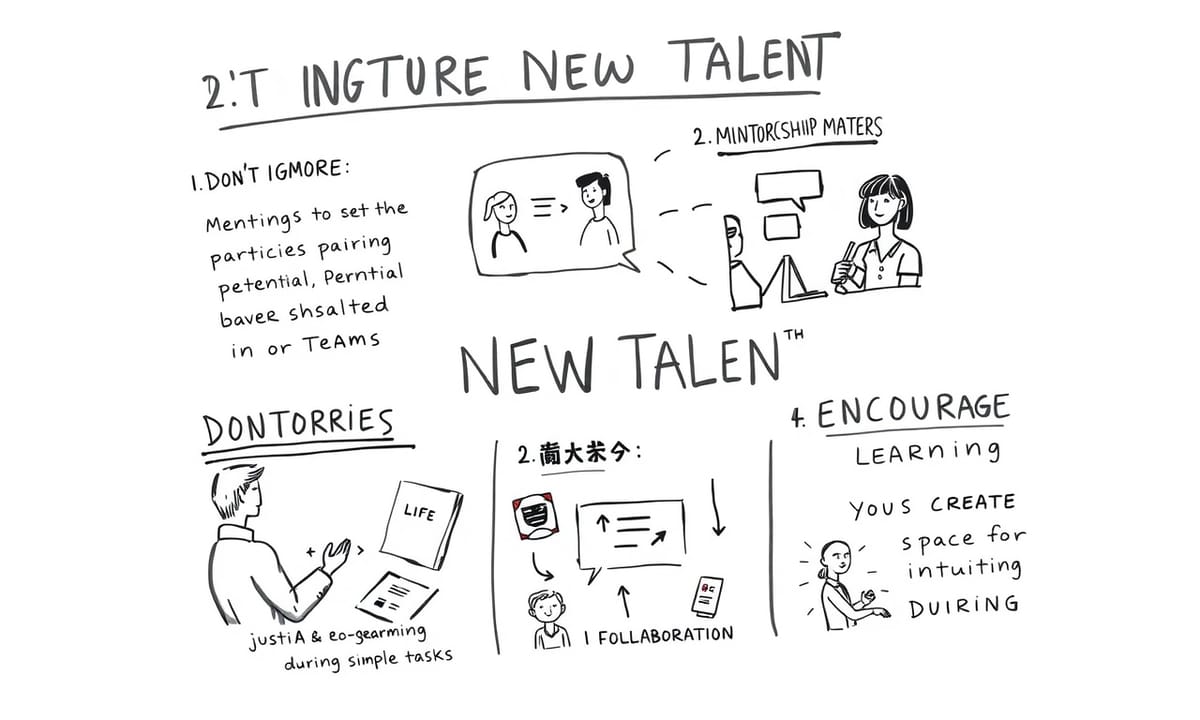 2.'T INGTURE NEW TALENT
1. DON'T IGMORE:
Mentings to set the
particies pairing
petential, Perntial
baver shsalted
in or TeAms
2. MINTORCSHIP MATERS
NEW TALEN TH
DONTORRIES
LIFE
justiA & eo-gearming
during simple tasks
2. 大米今:
1 FOLLABORATION
4. ENCOURAGE
LEARning
YOUS CREATE
space for
intuiting
DUIRING